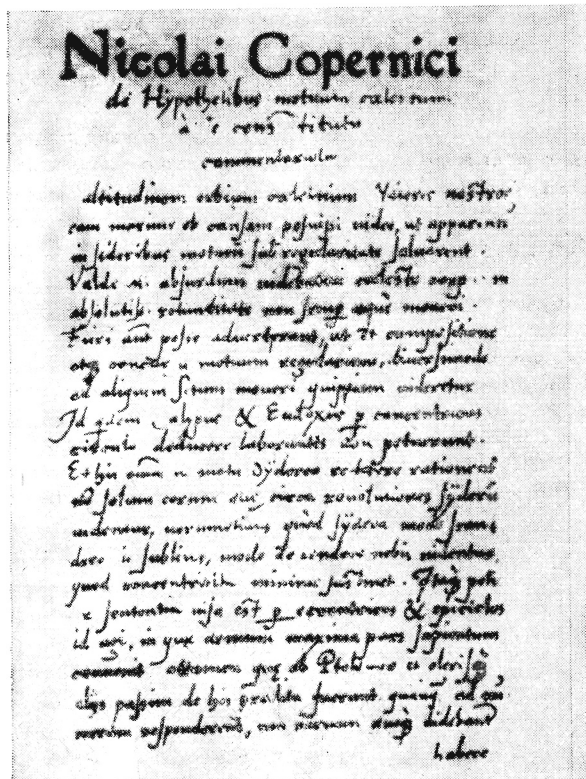 Nicolai Copernici
de Hypothesibus motuum caelestium
à se constitutis
commentariolus
multitudinem orbium caelestium
eam maxime ob causam posuisse video, ut apparentem
in sideribus motum sub regularitate salvarent
Valde n. absurdum videbatur caeleste corp. in
absolutiss. rotunditate non semp aeque moveri
Fieri aut posse adverterant, ut et compositione
atq motuum regularium, diversimode
ad aliquem situm moveri quippiam videretur
Id Calippus & Eudoxus p concentricos
circulos deducere laborantes non potuerunt
Et his n motu sydereo reddere rationem
no solum eorum quae circa revolutiones syderu
videntur, verumetiam quod sydera modo scan
dere in sublime, modo descendere nobis videntur,
quod concentricitas minime sustinet. Itaq poti
or sententia visa est p eccentricos & epiciclos
id agi, in qua demum maxima pars sapientum
convenit attamen quae ob Ptolemeo et
alijs passim de his prodita fuerunt quanq ad nu
merum responderent, non videbant
habere